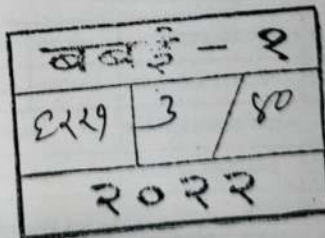 बबई - १
६२२१ 3 / ४०
२०२२